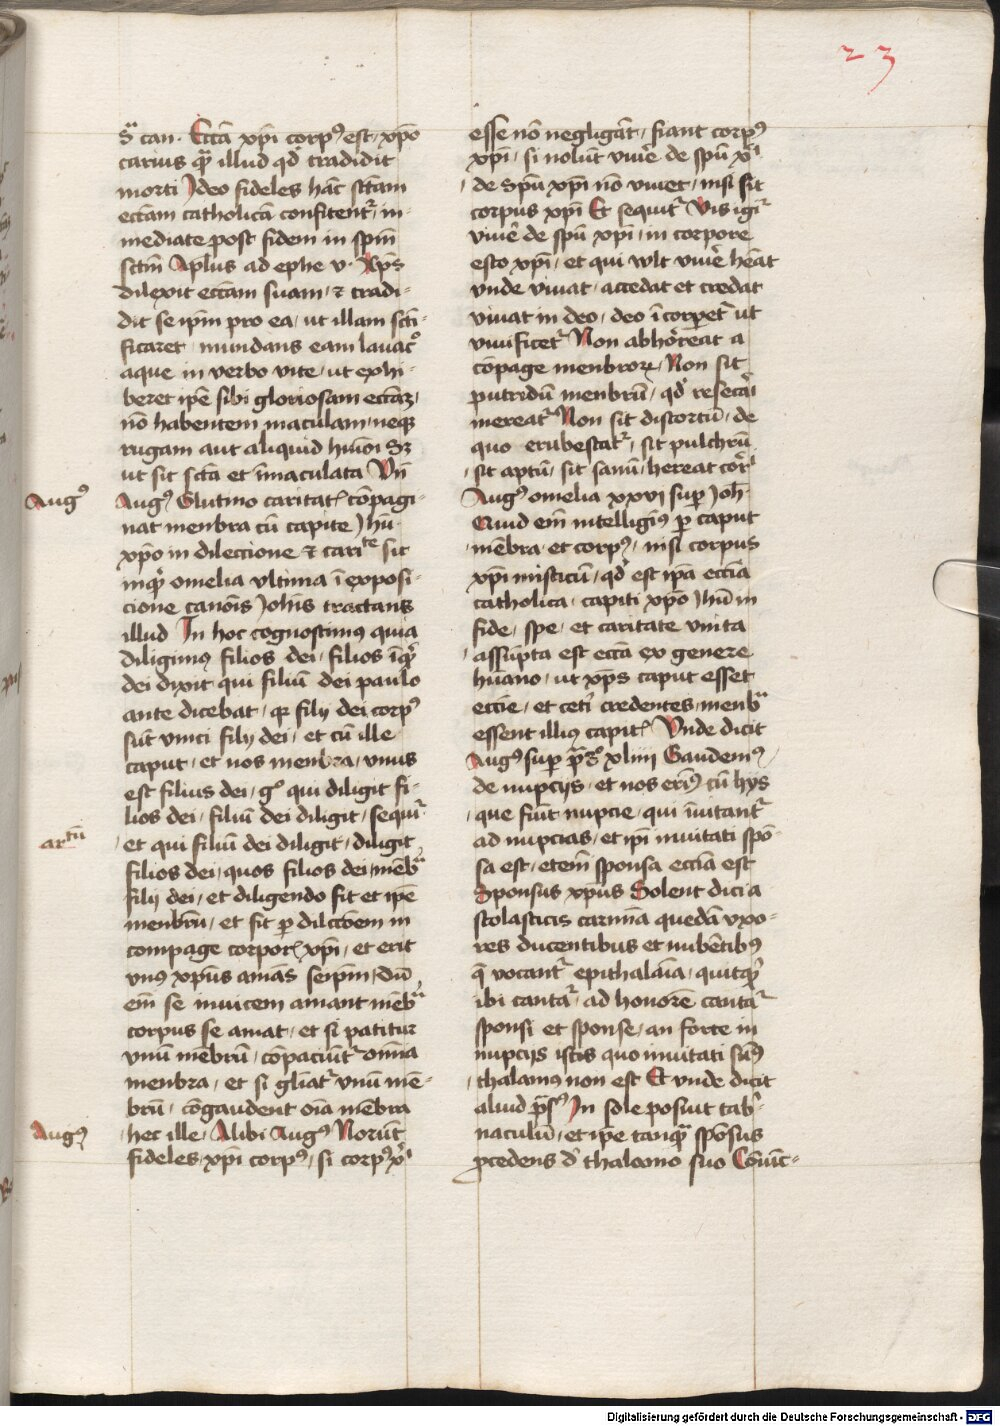 23
can. Ecc̄a xp̄i corpꝰ est, xp̄o
carius qͣ illud qd̓ tradidit
morti Ideo fideles hāc sctām
ecc̄am catholicā confitent᷑ in-
mediate post fidem in spm̄
sctm̄ Aplus ad ephe v. Xp̄s
dilexit ecc̄am suam, ⁊ tradi-
dit se ip̄m pro ea, ut illam scti-
ficaret, mundans eam lauacͦ
aque in verbo vite, ut exhi-
beret ip̄e sibi gloriosam ecc̄aꝫ,
nō habentem maculam, neqꝫ
rugam aut aliquid hīuoi Sꝫ
ut sit sctā et īmaculata Vn̄
Augꝰ
Augꝰ Glutino caritat͛ cōpagi-
nat menbra cū capite Ihū
xp̄o in dileccione ⁊ cariᵗᵉ sit
inqͣ omelia vltima ī exposi-
cione canōis Ioh̄is tractans
illud In hoc cognoscimꝰ quia
diligimꝰ filios dei, filios īqͣ
dei dixit qui filiū dei paulo
ante dicebat, qꝛ filij dei corpꝰ
sūt vnici filij dei, et cū ille
caput, et nos menbra, vnus
est filius dei, gͦ qui diligit fi-
lios dei, filiū dei diligit, sequit᷑
artū
et qui filiū dei diligit, diligit
filios dei, quos filios dei, mēbͣ
filij dei, et diligendo fit et ip̄e
menbrū, et fit ꝑ dilcc̄oem in
compage corpor͛ xp̄i, et erit
vnꝰ xp̄us amās seip̄m, Dū
em̄ se inuicem amant mēbͣ,
corpus se amat, et si patitur
vnū mēbrū, cōpaciūt᷑ om̄ia
menbra, et si gl̄iat᷑ vnū mē-
brū, cōgaudent oīa mēbra
Augꝰ
hec ille, Alibi Augꝰ Norūt
fideles xp̄i corpꝰ, si corpꝰ xͥ
esse nō negligāt, fiant corpꝰ
xp̄i, si nolūt viuē de spū xͥ
de Spū xp̄i nō viuet, nisi sit
corpus xp̄i Et sequit᷑ Vis igͥ
viuē de spū xp̄i, in corpore
esto xp̄i, et qui wlt viuē hēat
vnde viuat, accedat et credat
viuat in deo, deo īcorꝑet᷑ ut
viuificet᷑ Non abhorreat a
cōpage menbroꝝ, Non sit
putridū menbrū, qd̓ resecaͥ
mereat᷑ Non sit distortū, de
quo erubescat᷑, sit pulchrū
sit aptū, sit sanū, hereat corͥ
Augꝰ omelia xxvi suꝑ Ioh̄
Quid em̄ intelligimꝰ ꝑ caput
mēbra, et corpꝰ, nisi corpus
xp̄i misticū, qd̓ est ip̄a ecc̄ia
catholica, capiti xp̄o Ihū in
fide, spe, et caritate vnita
assūpta est ecc̄a ex genere
hūano, ut xp̄s caput esset
ecc̄ie, et cet̓i credentes, menbͣ
essent illiꝰ capit͛ Vnde dicit
Augꝰ suꝑ pͣsͦ xliiij Gaudemꝰ,
de nupcijs, et nos erimꝰ cū hys
que fiūt nupcie, qui īuitant᷑
ad nupcias, et ip̄i inuitati spō-
sa est, etem̄ sponsa ecc̄ia est
Sponsus xp̄us Solent dici a
scolasticis carmīa quedā vxo-
res ducentibus et nubētibꝰ
q̄ vocant᷑ epithalaīa, quitqͣ
ibi cantat᷑, ad honorē cantat᷑
sponsi et sponse, an forte in
nupcijs istis quo inuitati sumꝰ
thalamꝰ non est Et vnde dicit
aliud pͣsꝰ In sole posuit tabᷣ-
naculū, et ip̄e tanqͣ spōsus
ꝓcedens d̓ thalamo suo Cōiūc-
Digitalisierung gefördert durch die Deutsche Forschungsgemeinschaft - DFG